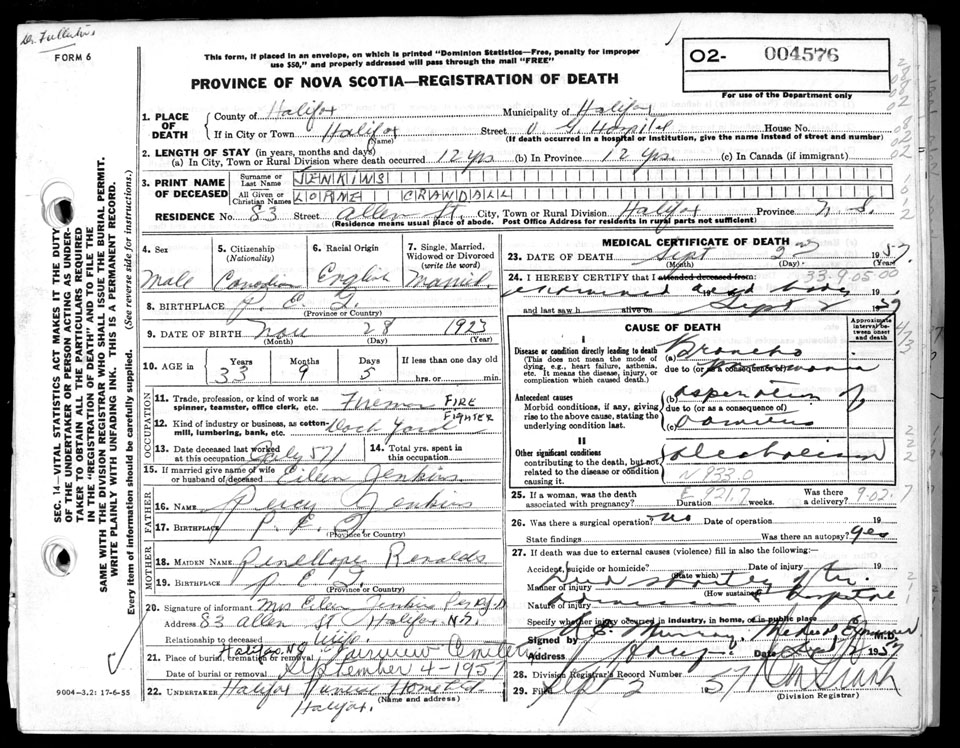 FORM 6
This form, if placed in an envelope, on which is printed "Dominion Statistics—Free, penalty for improper
use $50," and properly addressed will pass through the mail "FREE"
PROVINCE OF NOVA SCOTIA—REGISTRATION OF DEATH
O2- 004576
For use of the Department only
1. PLACE OF DEATH
County of Halifax Municipality of Halifax
If in City or Town Halifax Street V. G. Hospital House No.
(Name) (If death occurred in a hospital or institution, give the name instead of street and number)
2. LENGTH OF STAY (in years, months and days)
(a) In City, Town or Rural Division where death occurred 12 yrs (b) In Province 12 yrs. (c) In Canada (if immigrant)
3. PRINT NAME OF DECEASED
Surname or Last Name JENKINS
All Given or Christian Names LORNE CRANDALL
RESIDENCE No. 83 Street Allen St. City, Town or Rural Division Halifax Province N. S.
(Residence means usual place of abode. Post Office Address for residents in rural parts not sufficient)
4. Sex
Male
5. Citizenship
(Nationality)
Canadian
6. Racial Origin
English
7. Single, Married, Widowed or Divorced
(write the word)
Married.
8. BIRTHPLACE P. E. I.
(Province or Country)
9. DATE OF BIRTH Nov 28 1923
(Month) (Day) (Year)
10. AGE in Years Months Days If less than one day
33 9 5 hrs. or min.
OCCUPATION
11. Trade, profession, or kind of work as
spinner, teamster, office clerk, etc. Fireman FIRE FIGHTER
12. Kind of industry or business, as cotton-
mill, lumbering, bank, etc. Dock Yard
13. Date deceased last worked
at this occupation July 57
14. Total yrs. spent in
this occupation
15. If married give name of wife
or husband of deceased Eileen Jenkins
FATHER
16. NAME Percy Jenkins
17. BIRTHPLACE P. E. I.
(Province or Country)
MOTHER
18. MAIDEN NAME Penellope Renolds
19. BIRTHPLACE P. E. I.
(Province or Country)
20. Signature of informant Mrs Eileen Jenkins
Address 83 Allen St Halifax N.S.
Relationship to deceased Wife
21. Place of burial, cremation or removal Halifax NS Fairview Cemetery
Date of burial or removal September 4 - 1957
22. UNDERTAKER Halifax Funeral Home Ltd.
(Name and address)
Halifax.
9004-3.2: 17-6-55
MEDICAL CERTIFICATE OF DEATH
23. DATE OF DEATH Sept 2 1957
(Month) (Day) (Year)
24. I HEREBY CERTIFY that I attended deceased from:
examined dead body 33-9-05-00
and last saw h alive on Sept 2 1957
CAUSE OF DEATH
Approximate interval between onset and death
I
Disease or condition directly leading to death
(This does not mean the mode of
dying, e.g., heart failure, asthenia,
etc. It means the disease, injury, or
complication which caused death.)
(a) Broncho
due to (or as a consequence of) Pneumonia
Antecedent causes
Morbid conditions, if any, giving
rise to the above cause, stating the
underlying condition last.
(b) aspiration of
due to (or as a consequence of)
(c) vomitus
II
Other significant conditions
contributing to the death, but not
related to the disease or condition
causing it.
alcoholism
N 933.0
25. If a woman, was the death
associated with pregnancy? E 921.7 Duration weeks. Was there a delivery? 9-02.7
26. Was there a surgical operation? no Date of operation 19
State findings Was there an autopsy? yes
27. If death was due to external causes (violence) fill in also the following:
Accident, suicide or homicide? Date of injury 19
(State which)
Manner of injury Died shortly after
(How sustained)
Nature of injury hospital
Specify whether injury occurred in industry, in home, or in public place
Signed by Murray Medical Examiner M.D.
Address Date Sept 2 1957
28. Division Registrar's Record Number
29. Filed Sept 3 57
(Division Registrar)
SEC. 14—VITAL STATISTICS ACT MAKES IT THE DUTY
OF THE UNDERTAKER OR PERSON ACTING AS UNDER-
TAKER TO OBTAIN ALL THE PARTICULARS REQUIRED
IN THE "REGISTRATION OF DEATH" AND TO FILE THE
SAME WITH THE DIVISION REGISTRAR WHO SHALL ISSUE THE BURIAL PERMIT.
WRITE PLAINLY WITH UNFADING INK. THIS IS A PERMANENT RECORD.
Every item of information should be carefully supplied. (See reverse side for instructions.)